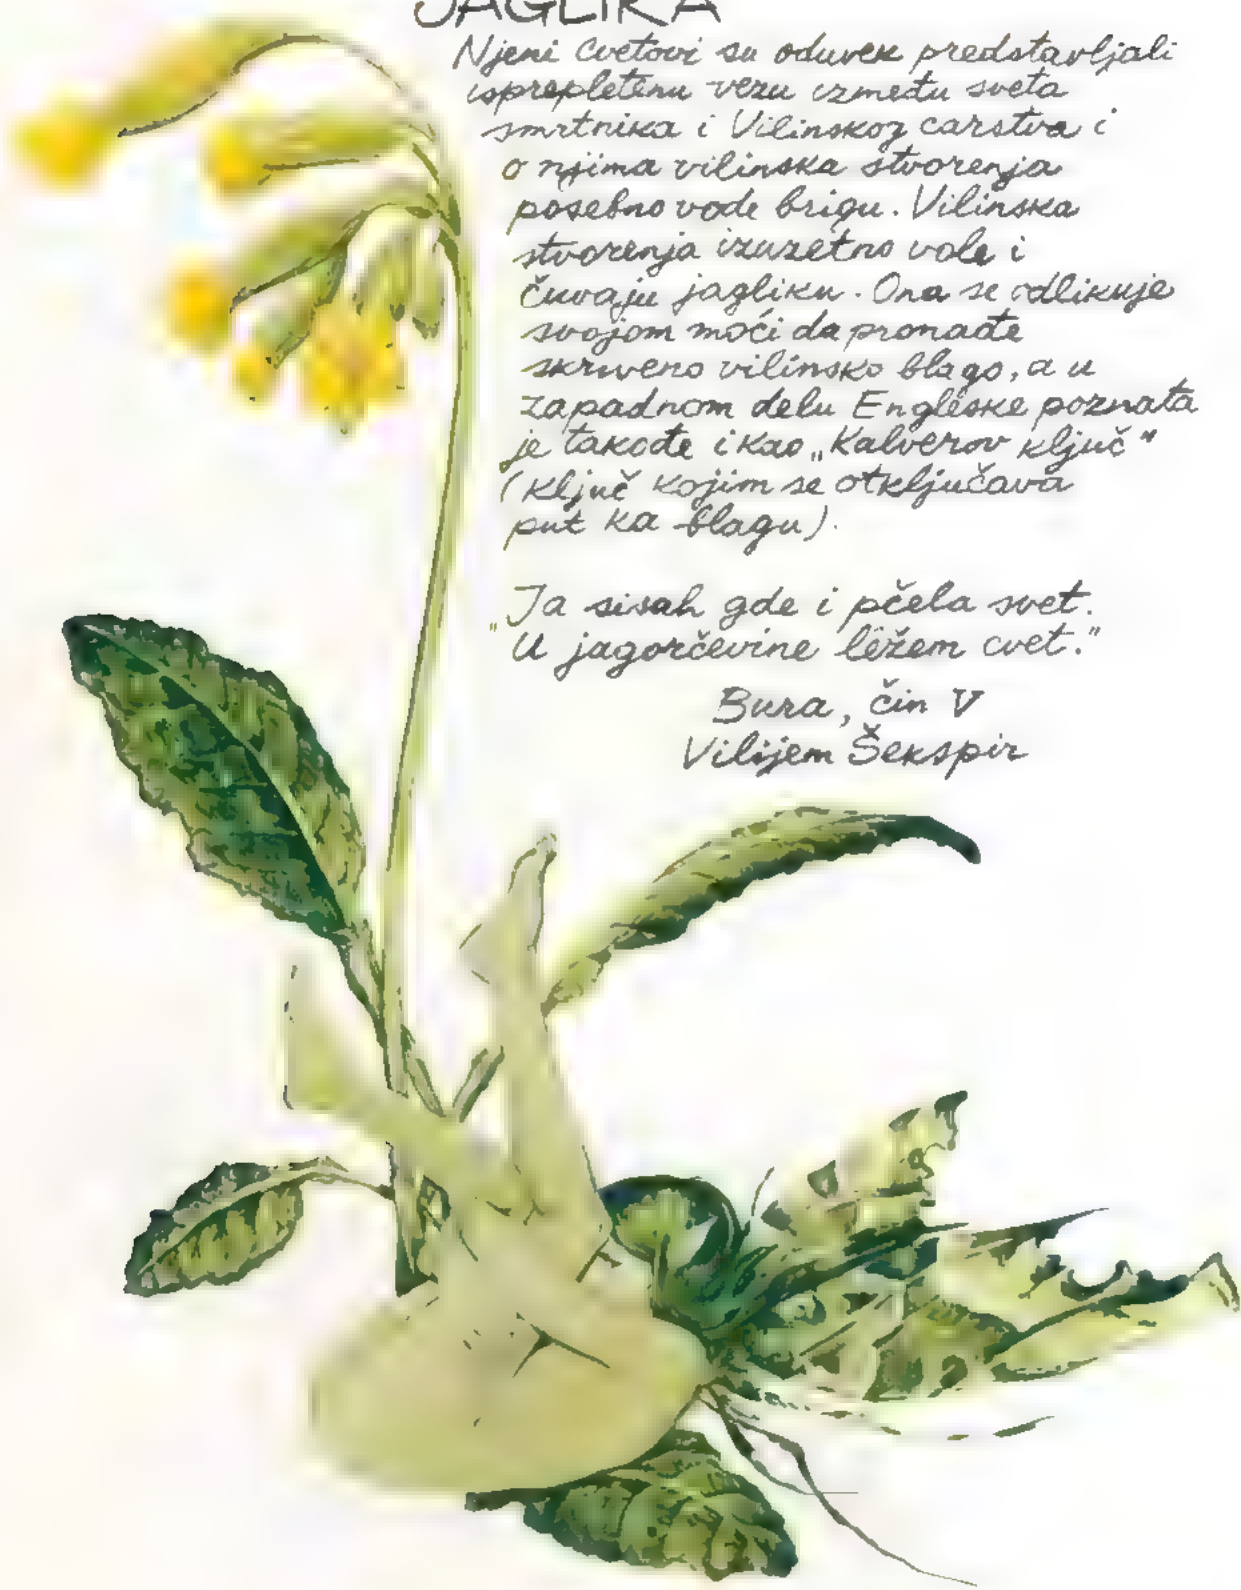 JAGLIKA
Njeni cvetovi su oduvek predstavljali
isprepletenu vezu između sveta
smrtnika i Vilinskog carstva i
o njima vilinska stvorenja
posebno vode brigu. Vilinska
stvorenja izuzetno vole i
čuvaju jagliku. Ona se odlikuje
svojom moći da pronađe
skriveno vilinsko blago, a u
zapadnom delu Engleske poznata
je takođe i kao „Kalverov ključ"
(ključ kojim se otključava
put ka blagu).
„Ja sisah gde i pčela svet.
U jagorčevine ležem cvet."
Bura, čin V
Vilijem Šekspir